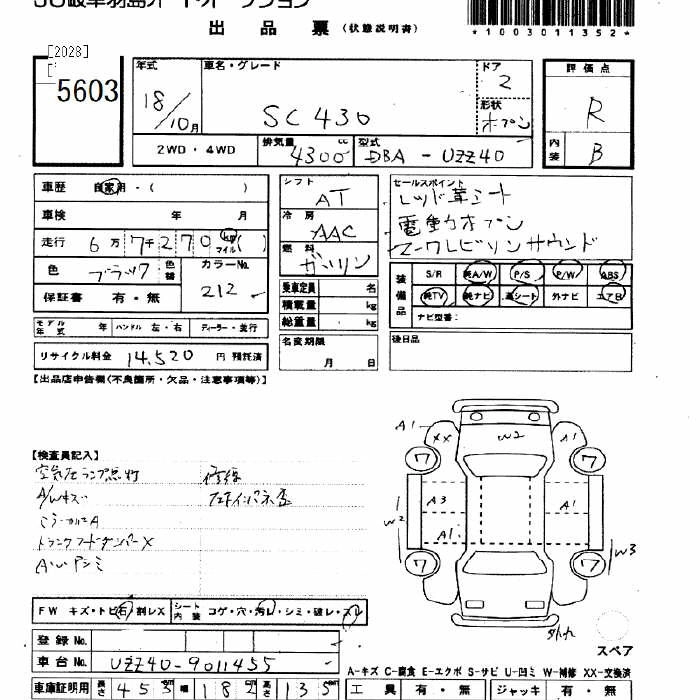 JU岐阜羽島オートオークション
出品票 (状態説明書)
*1003011352*
[2028]
5603
年式 車名・グレード ドア 評価点
18/10月 SC430 2 R
形状 オープン
2WD・4WD 排気量 4300 cc 型式 DBA-UZZ40 内装 B
車歴 自家用・( )
車検 年 月
走行 6万7千270 km マイル ( )
色 ブラック 色替 カラーNo. 212
保証書 有・無
モデル年式 年 ハンドル 左・右 ディーラー・並行
リサイクル料金 14,520 円 預託済
シフト AT
冷房 AAC
燃料 ガソリン
乗車定員 名
積載量 kg
総重量 kg
名変期限
月 日
セールスポイント
レッド革シート
電動オープン
マークレビンソンサウンド
装備品 S/R 純A/W P/S P/W ABS
純TV 純ナビ 革シート 外ナビ エアB
ナビ型番:
後日品
【出品店申告欄(不良箇所・欠品・注意事項等)】
【検査員記入】
空気圧ランプ点灯 修復
A/Wキズ
トランクフードダンパーX
A1 XX W2 A1
ワ ワ
A3 A1
W2 A1 W3
ワ ワ
スペア
FW キズ・トビ石・割レX シート内装 コゲ・穴・汚レ・シミ・破レ・スレ
登録No.
車台No. UZZ40-9011455
A-キズ C-腐食 E-エクボ S-サビ U-凹ミ W-補修 XX-交換済
車庫証明用 長さ 453 幅 182 高さ 135 工具 有・無 ジャッキ 有・無